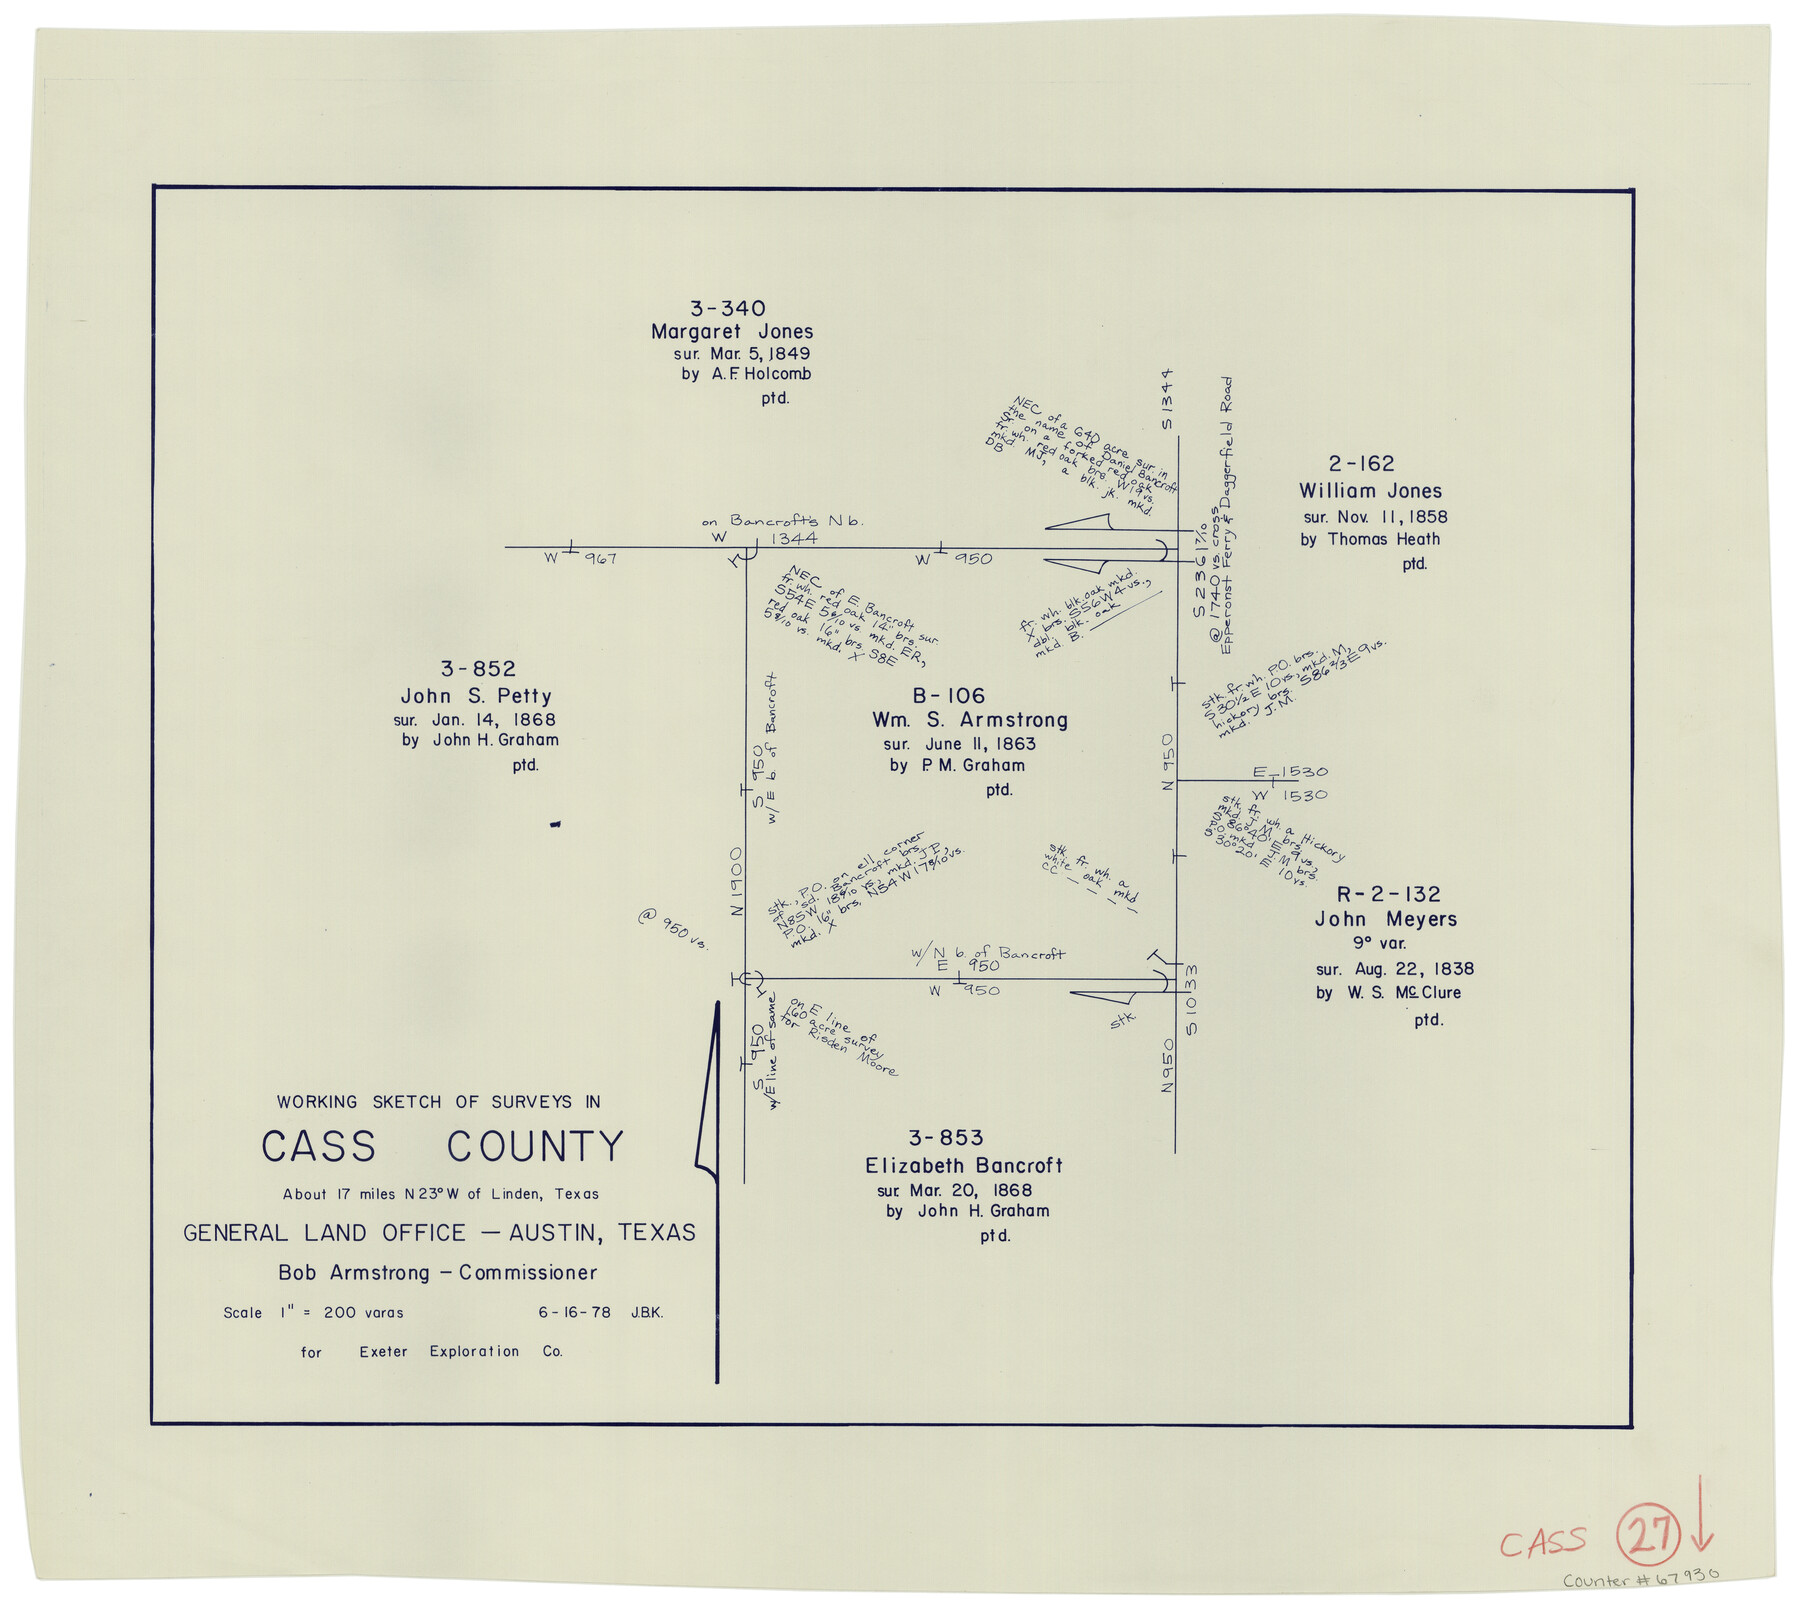 3-340
Margaret Jones
sur. Mar. 5, 1849
by A.F. Holcomb
ptd.
S 1344
NEC of a 640 acre sur. in
the name of Daniel Bancroft
Sr. on a forked red oak
fr. wh. red oak brs. W 19 vs.
mkd. MJ, a blk. jk. mkd.
DB
S 2361 7/10
@ 1740 vs. cross
Epperonst Ferry & Daggerfield Road
2-162
William Jones
sur. Nov. 11, 1858
by Thomas Heath
ptd.
on Bancroft's N b.
W 1344
W 967
W 950
NEC of E. Bancroft sur.
fr. wh. red oak 14" brs.
S54E 5 9/10 vs. mkd. ER,
red oak 16" brs. S8E
5 9/10 vs. mkd. X
fr. wh. blk. oak mkd.
X brs. S56W 4 vs.,
dbl. blk. oak
mkd. B.
stk. fr. wh. P.O. brs.
S 30 1/2 E 10 vs., mkd. M,
hickory brs. S86 2/3 E 9 vs.
mkd. J.M.
3-852
John S. Petty
sur. Jan. 14, 1868
by John H. Graham
ptd.
S 950
w/ E b. of Bancroft
B-106
Wm. S. Armstrong
sur. June 11, 1863
by P. M. Graham
ptd.
N 950
E 1530
W 1530
stk. fr. wh. a Hickory
mkd. J.M. brs.
S 86°40' E 9 vs.,
P.O. mkd. J.M. brs.
S 30°20' E 10 vs.
N 1900
@ 950 vs.
stk., P.O. on ell corner
of sd. Bancroft brs.
N85W 18 8/10 vs., mkd. J P,
P.O. 16" brs. N54W 17 8/10 vs.
mkd. X
stk. fr. wh. a
white oak mkd
CC
R-2-132
John Meyers
9° var.
sur. Aug. 22, 1838
by W. S. McClure
ptd.
w/ N b. of Bancroft
E 950
W 950
stk.
S 1033
N 950
S 950
w/ E line of same
on E line of
160 acre survey
for Risden Moore
3-853
Elizabeth Bancroft
sur. Mar. 20, 1868
by John H. Graham
ptd.
WORKING SKETCH OF SURVEYS IN
CASS COUNTY
About 17 miles N 23° W of Linden, Texas
GENERAL LAND OFFICE — AUSTIN, TEXAS
Bob Armstrong — Commissioner
Scale 1" = 200 varas 6-16-78 J.B.K.
for Exeter Exploration Co.
CASS 27
Counter # 67930